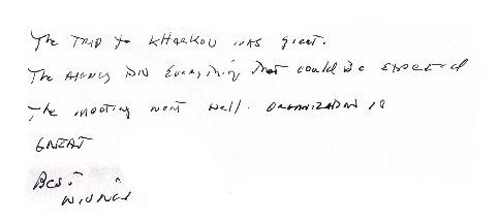 The TRIP to KHARKOV WAS great.
The AGENCY DID Everything that could be EXPECTED
The meeting went well. ORGANIZATION IS
GREAT
Best
WISHES